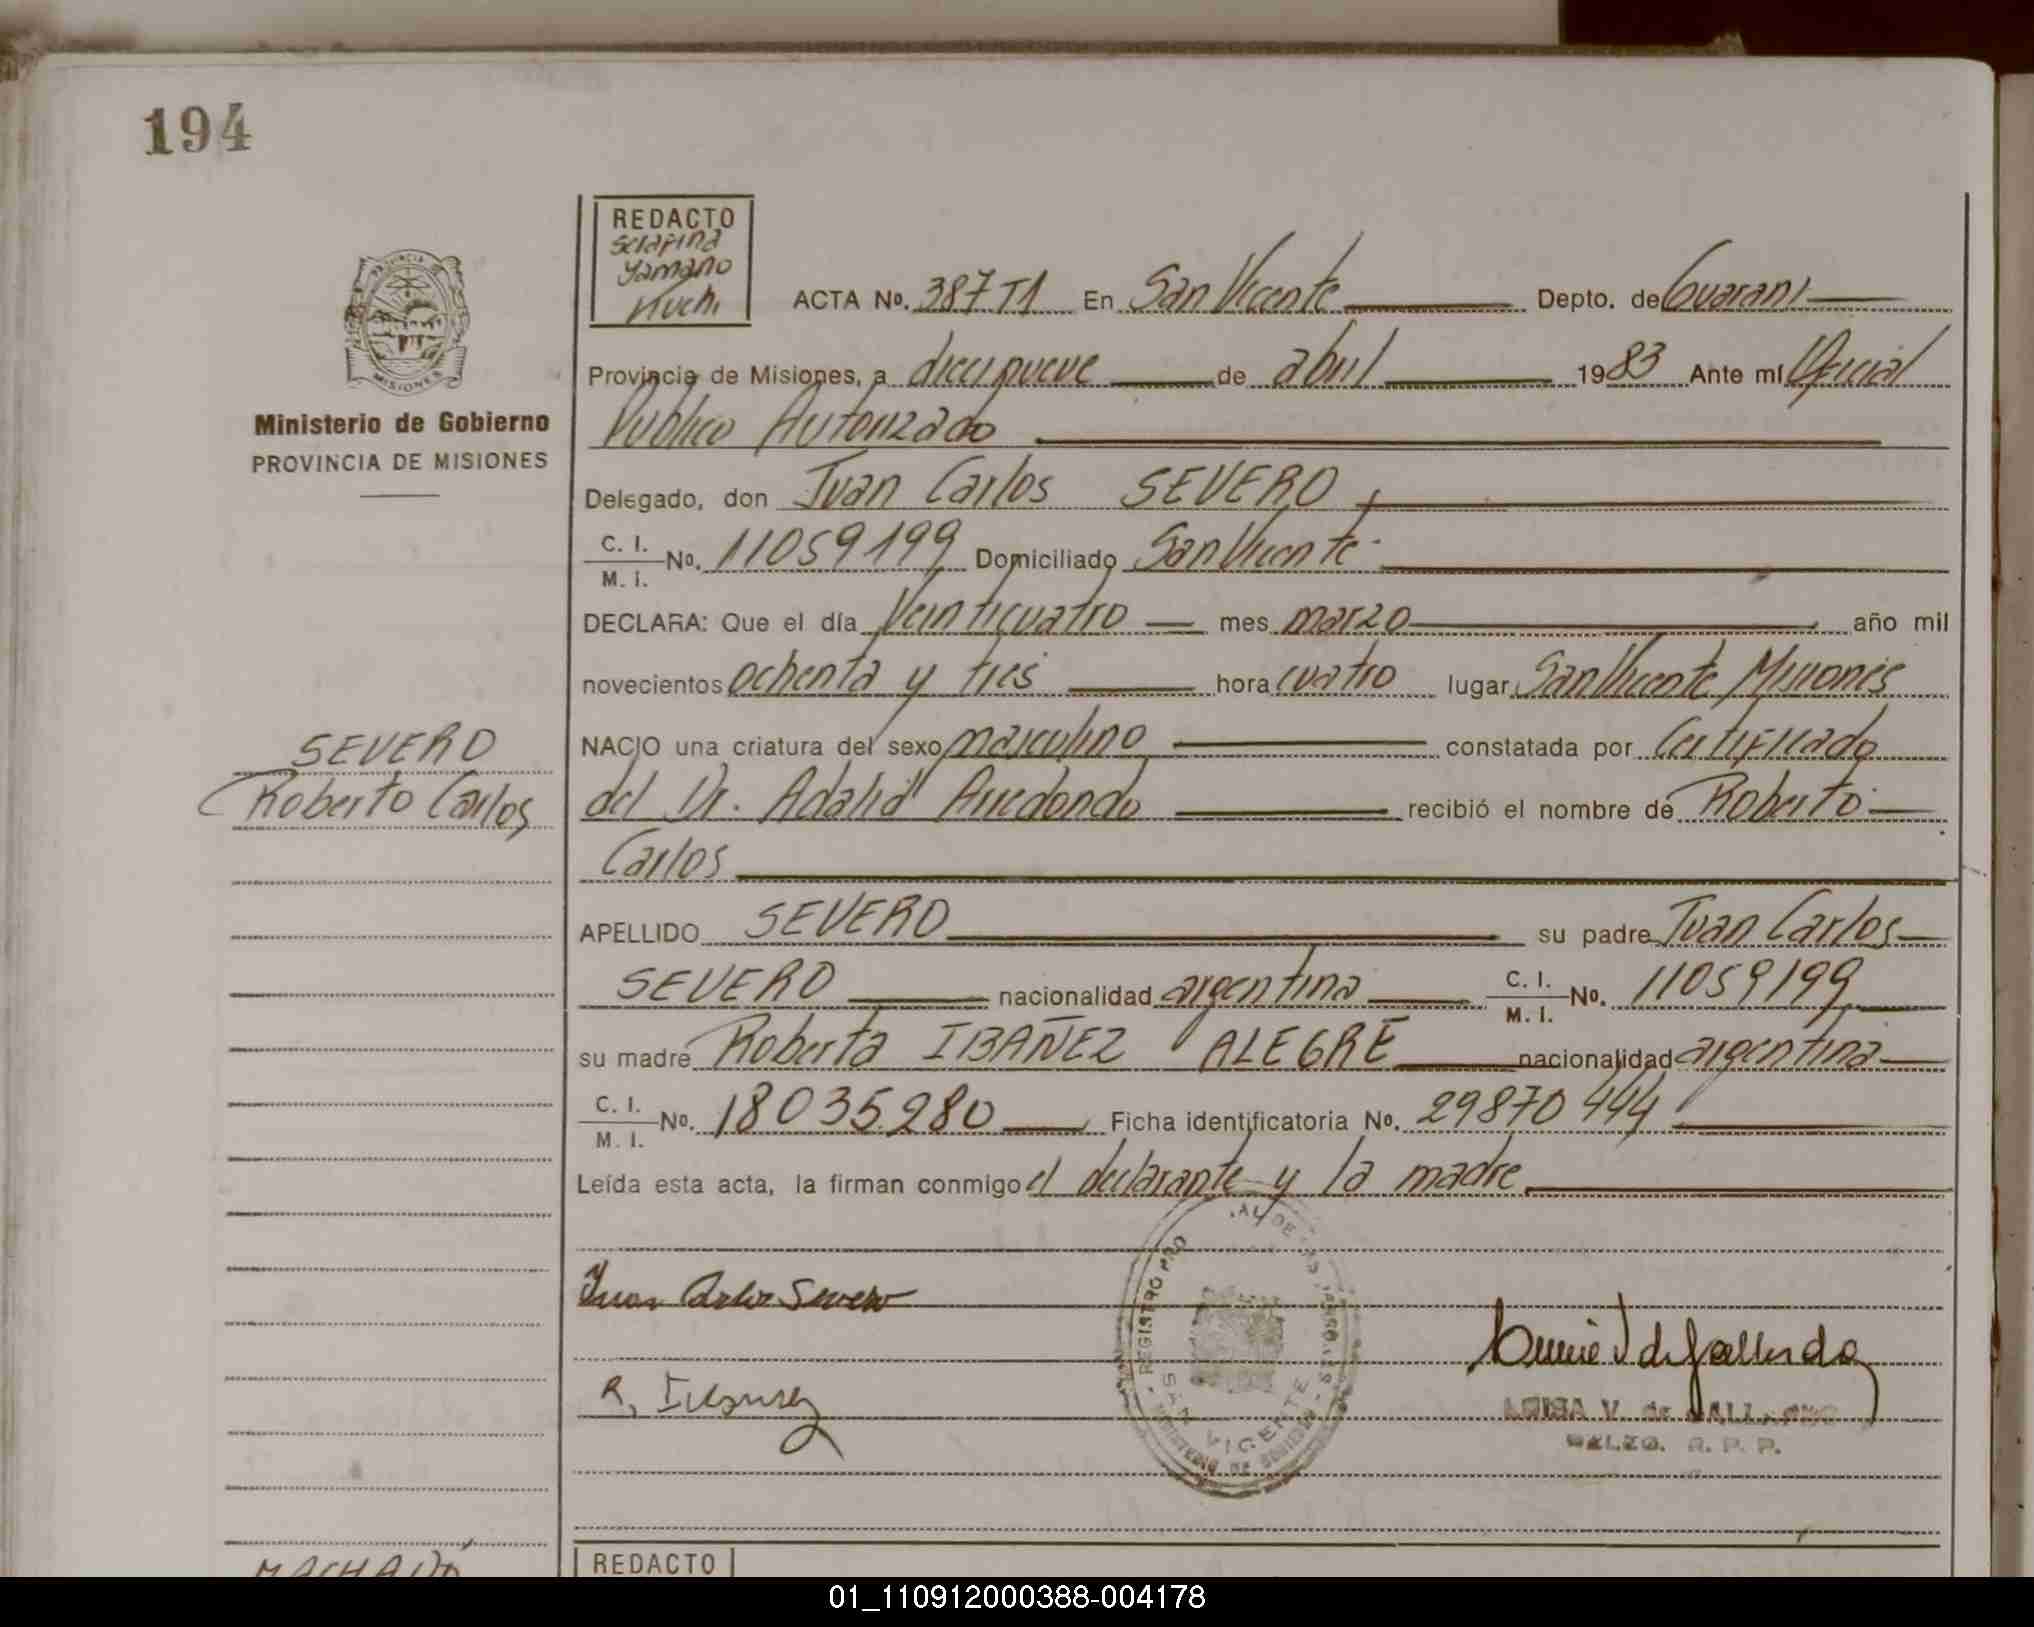 194
REDACTO
Serafina
Yamaño
Kuchi
ACTA No. 387 T1 En San Vicente Depto. de Guaraní
PROVINCIA DE
MISIONES
Provincia de Misiones, a diecinueve de abril 1983 Ante mí Oficial
Ministerio de Gobierno
PROVINCIA DE MISIONES
Público Autorizado
Delegado, don Juan Carlos SEVERO
C. I.
M. I. No. 11059199 Domiciliado San Vicente
DECLARA: Que el día Veinticuatro mes marzo año mil
novecientos ochenta y tres hora cuatro lugar San Vicente Misiones
SEVERO
Roberto Carlos
NACIO una criatura del sexo masculino constatada por Certificado
del Dr. Adalid Arredondo recibió el nombre de Roberto
Carlos
APELLIDO SEVERO su padre Juan Carlos
SEVERO nacionalidad argentina C. I.
M. I. No. 11059199
su madre Roberta IBAÑEZ ALEGRE nacionalidad argentina
C. I.
M. I. No. 18035.280 Ficha identificatoria No. 29870444
Leída esta acta, la firman conmigo el declarante y la madre
Juan Carlos Severo
R. Ibañez
REGISTRO PRO AL DE LAS PERSONAS
SAN VICENTE
MINISTERIO DE GOBIERNO
V. de GALLARDO
R. P. P.
REDACTO
01_110912000388-004178